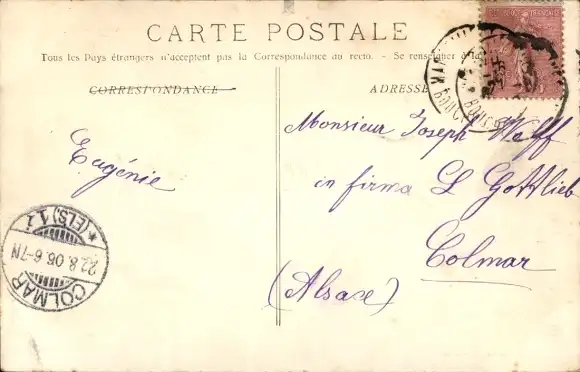 CARTE POSTALE
Tous les Pays étrangers n'acceptent pas la Correspondance au recto. - Se renseigner à la
CORRESPONDANCE
ADRESSE
Eugénie
Monsieur Joseph Wolff
in firma L Gottlieb
Colmar
(Alsace)
COLMAR
22.8.06.6-7N
* (ELS.) 1